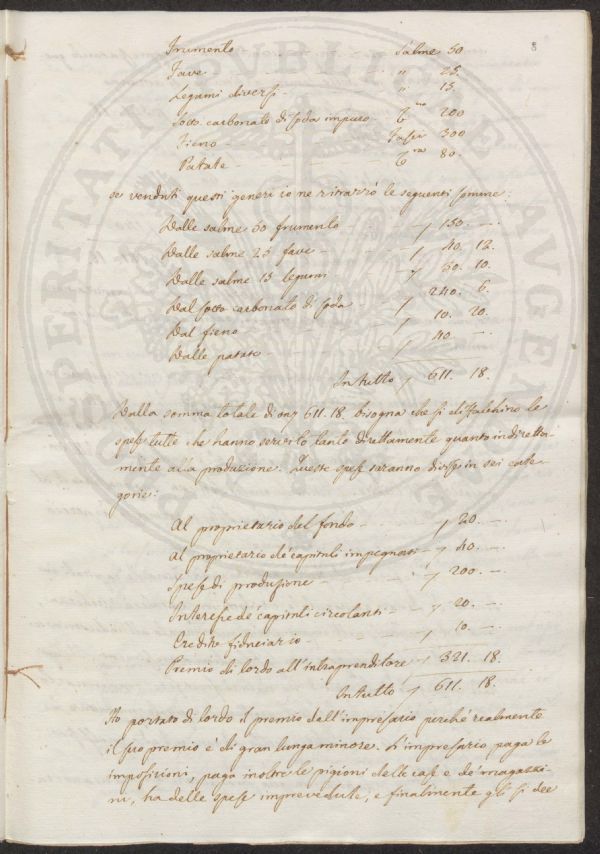 8
Frumento - - - - Salme 50
Fave - - - - " 25.
Legumi diversi - - " 15.
Sotto carbonato di soda impuro - C.na 200
Fieno - - - Fasci 300
Patate - - - C.ra 80.
se venduti questi generi io ne ritrarrò le seguenti somme:
Dalle salme 50 frumento - 150. -
Dalle salme 25 fave - 40. 12.
Dalle salme 15 legumi - 30. 10.
Dal sotto carbonato di soda - 240. 6.
Dal fieno - 10. 20.
Dalle patate - 40. -
In tutto 611. 18.
Dalla somma totale di onz 611. 18. bisogna che si distacchino le
spese tutte che hanno servito tanto direttamente quanto indiretta-
mente alla produzione. Queste spese saranno divise in sei cate-
gorie:
Al proprietario del fondo - 20. -
Al proprietario de' capitali impegnati - 40. -
Spese di produzione - 200. -
Interesse de' capitali circolanti - 20. -
Credito fiduciario - 10. -
Premio di lordo all'intraprenditore 321. 18.
In tutto 611. 18.
Ho portato di lordo il premio dell'impresario perché realmente
il suo premio è di gran lunga minore. L'impresario paga le
imposizioni, paga inoltre le pigioni delle case e de' magazzi-
ni, ha delle spese imprevedute, e finalmente gli si dee
PROSPERITATI PUBLICAE AUGENDAE